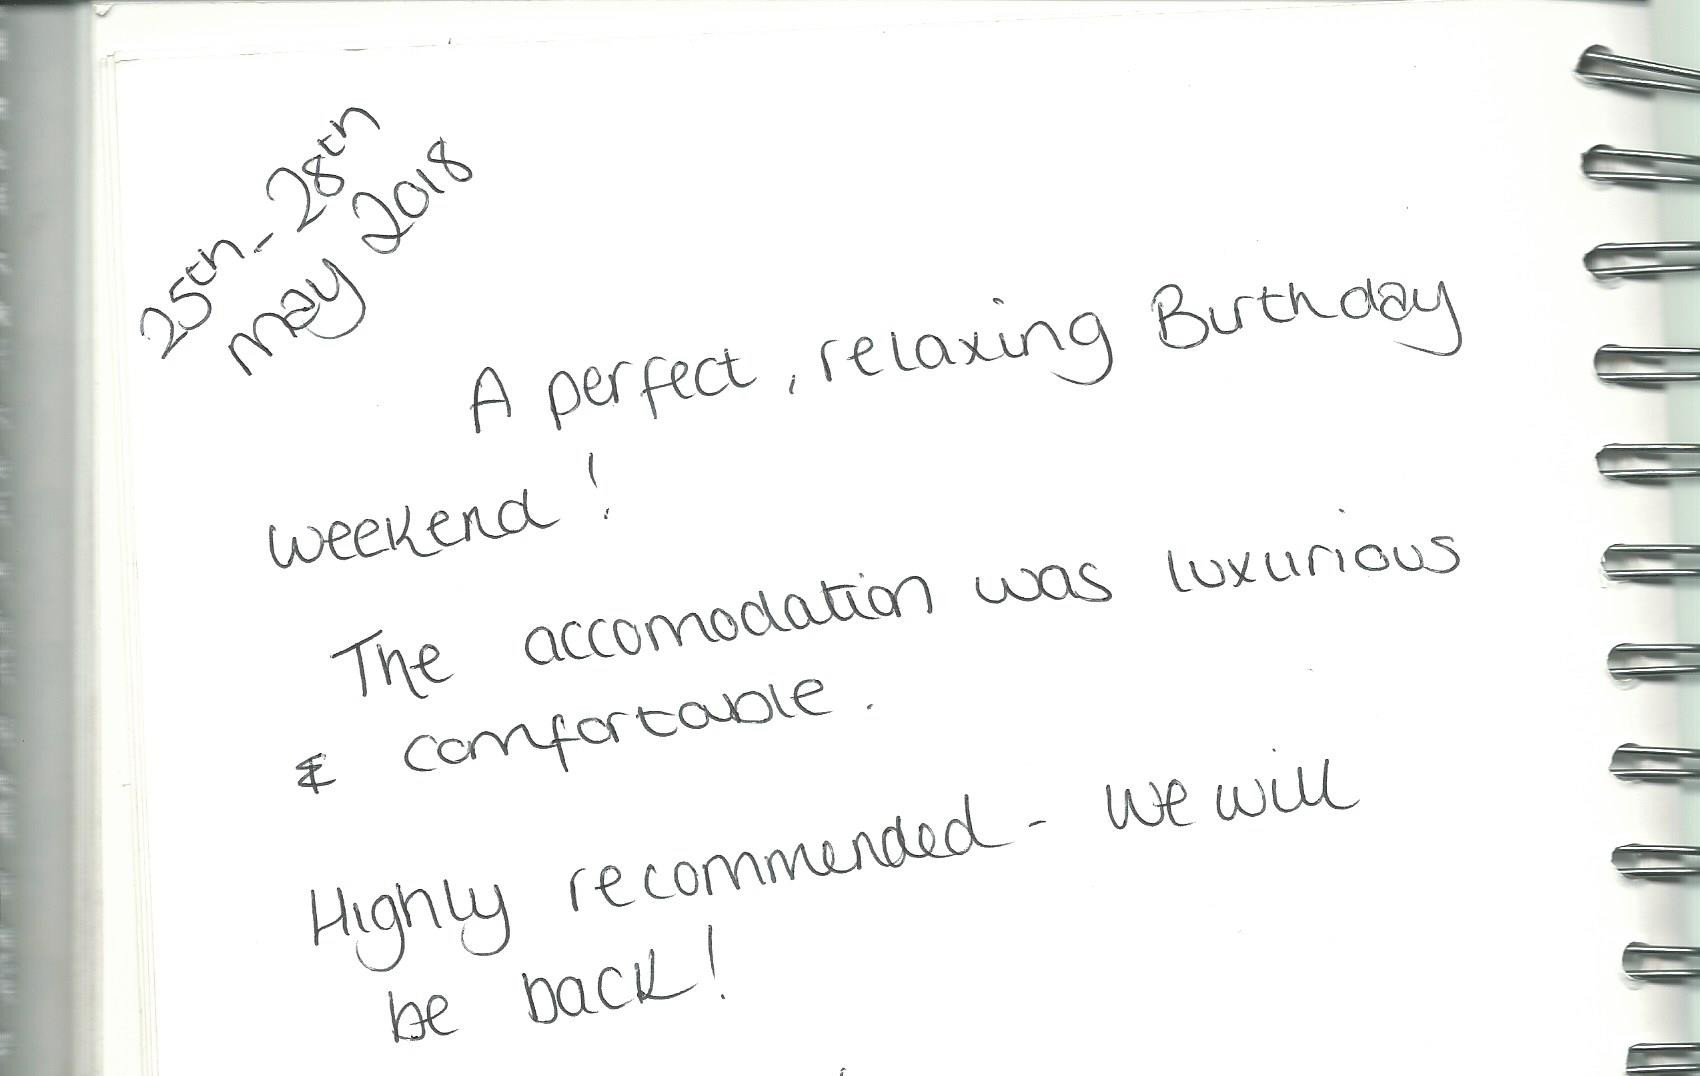 25th - 28th
may 2018
A perfect, relaxing Birthday
weekend!
The accomodation was luxurious
& comfortable.
Highly recommended - We will
be back!